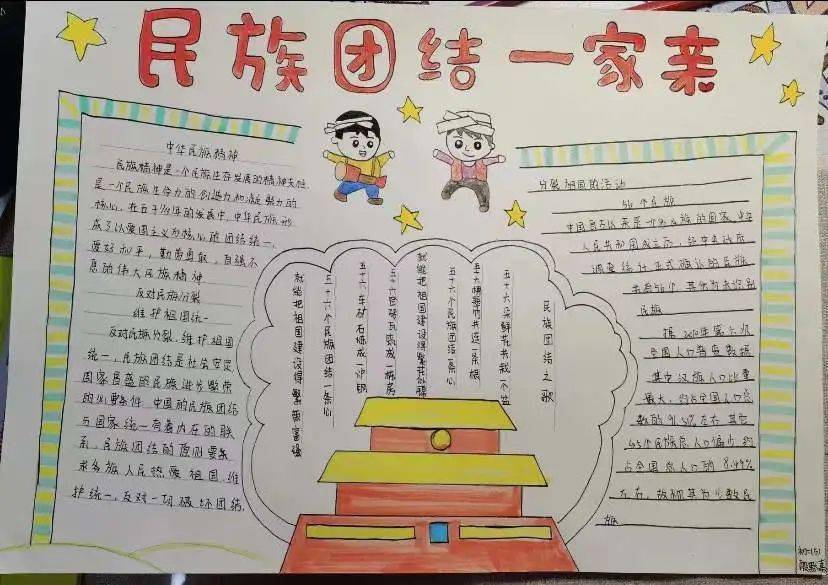 民族团结一家亲
中华民族精神
民族精神是一个民族生存发展的精神支柱
是一个民族生命力的创造力和凝聚力的
核心,在五千多年的发展中,中华民族形
成了以爱国主义为核心的团结统一、
爱好和平,勤劳勇敢,自强不
息的伟大民族精神
反对民族分裂
维护祖国统一
反对民族分裂,维护祖国
统一,民族团结是社会安定
国家昌盛的民族进步繁荣
的必要条件 中国的民族团结
与国家统一有着内在的联
系,民族团结的原则要
求各族人民热爱祖国,维
护统一,反对一切破坏团结,
民族团结之歌
五十六朵鲜花共栽一个盆
五十六根 共 一条板
五十六个民族团结一条心
就能把祖国建设得繁花似锦
五十六 砖瓦 成一栋房
五十六车矿石炼成一炉钢
五十六个民族团结一条心
就能把祖国建设得繁荣富强
分裂祖国的活动
56个民族
中国自古以来是一个多民族的国家,中华
人民共和国成立后,经中央政府
调查统计正式确认的民族
共有56个,其余为未识别
民族
据2010年第六次
全国人口普查数据
其中汉族人口比重
最大,约占中国人口总
数的91.51%左右,其它
55个民族总人口偏少,约
占全国总人口的8.49%
左右,故称其为少数民
族
初一(5)